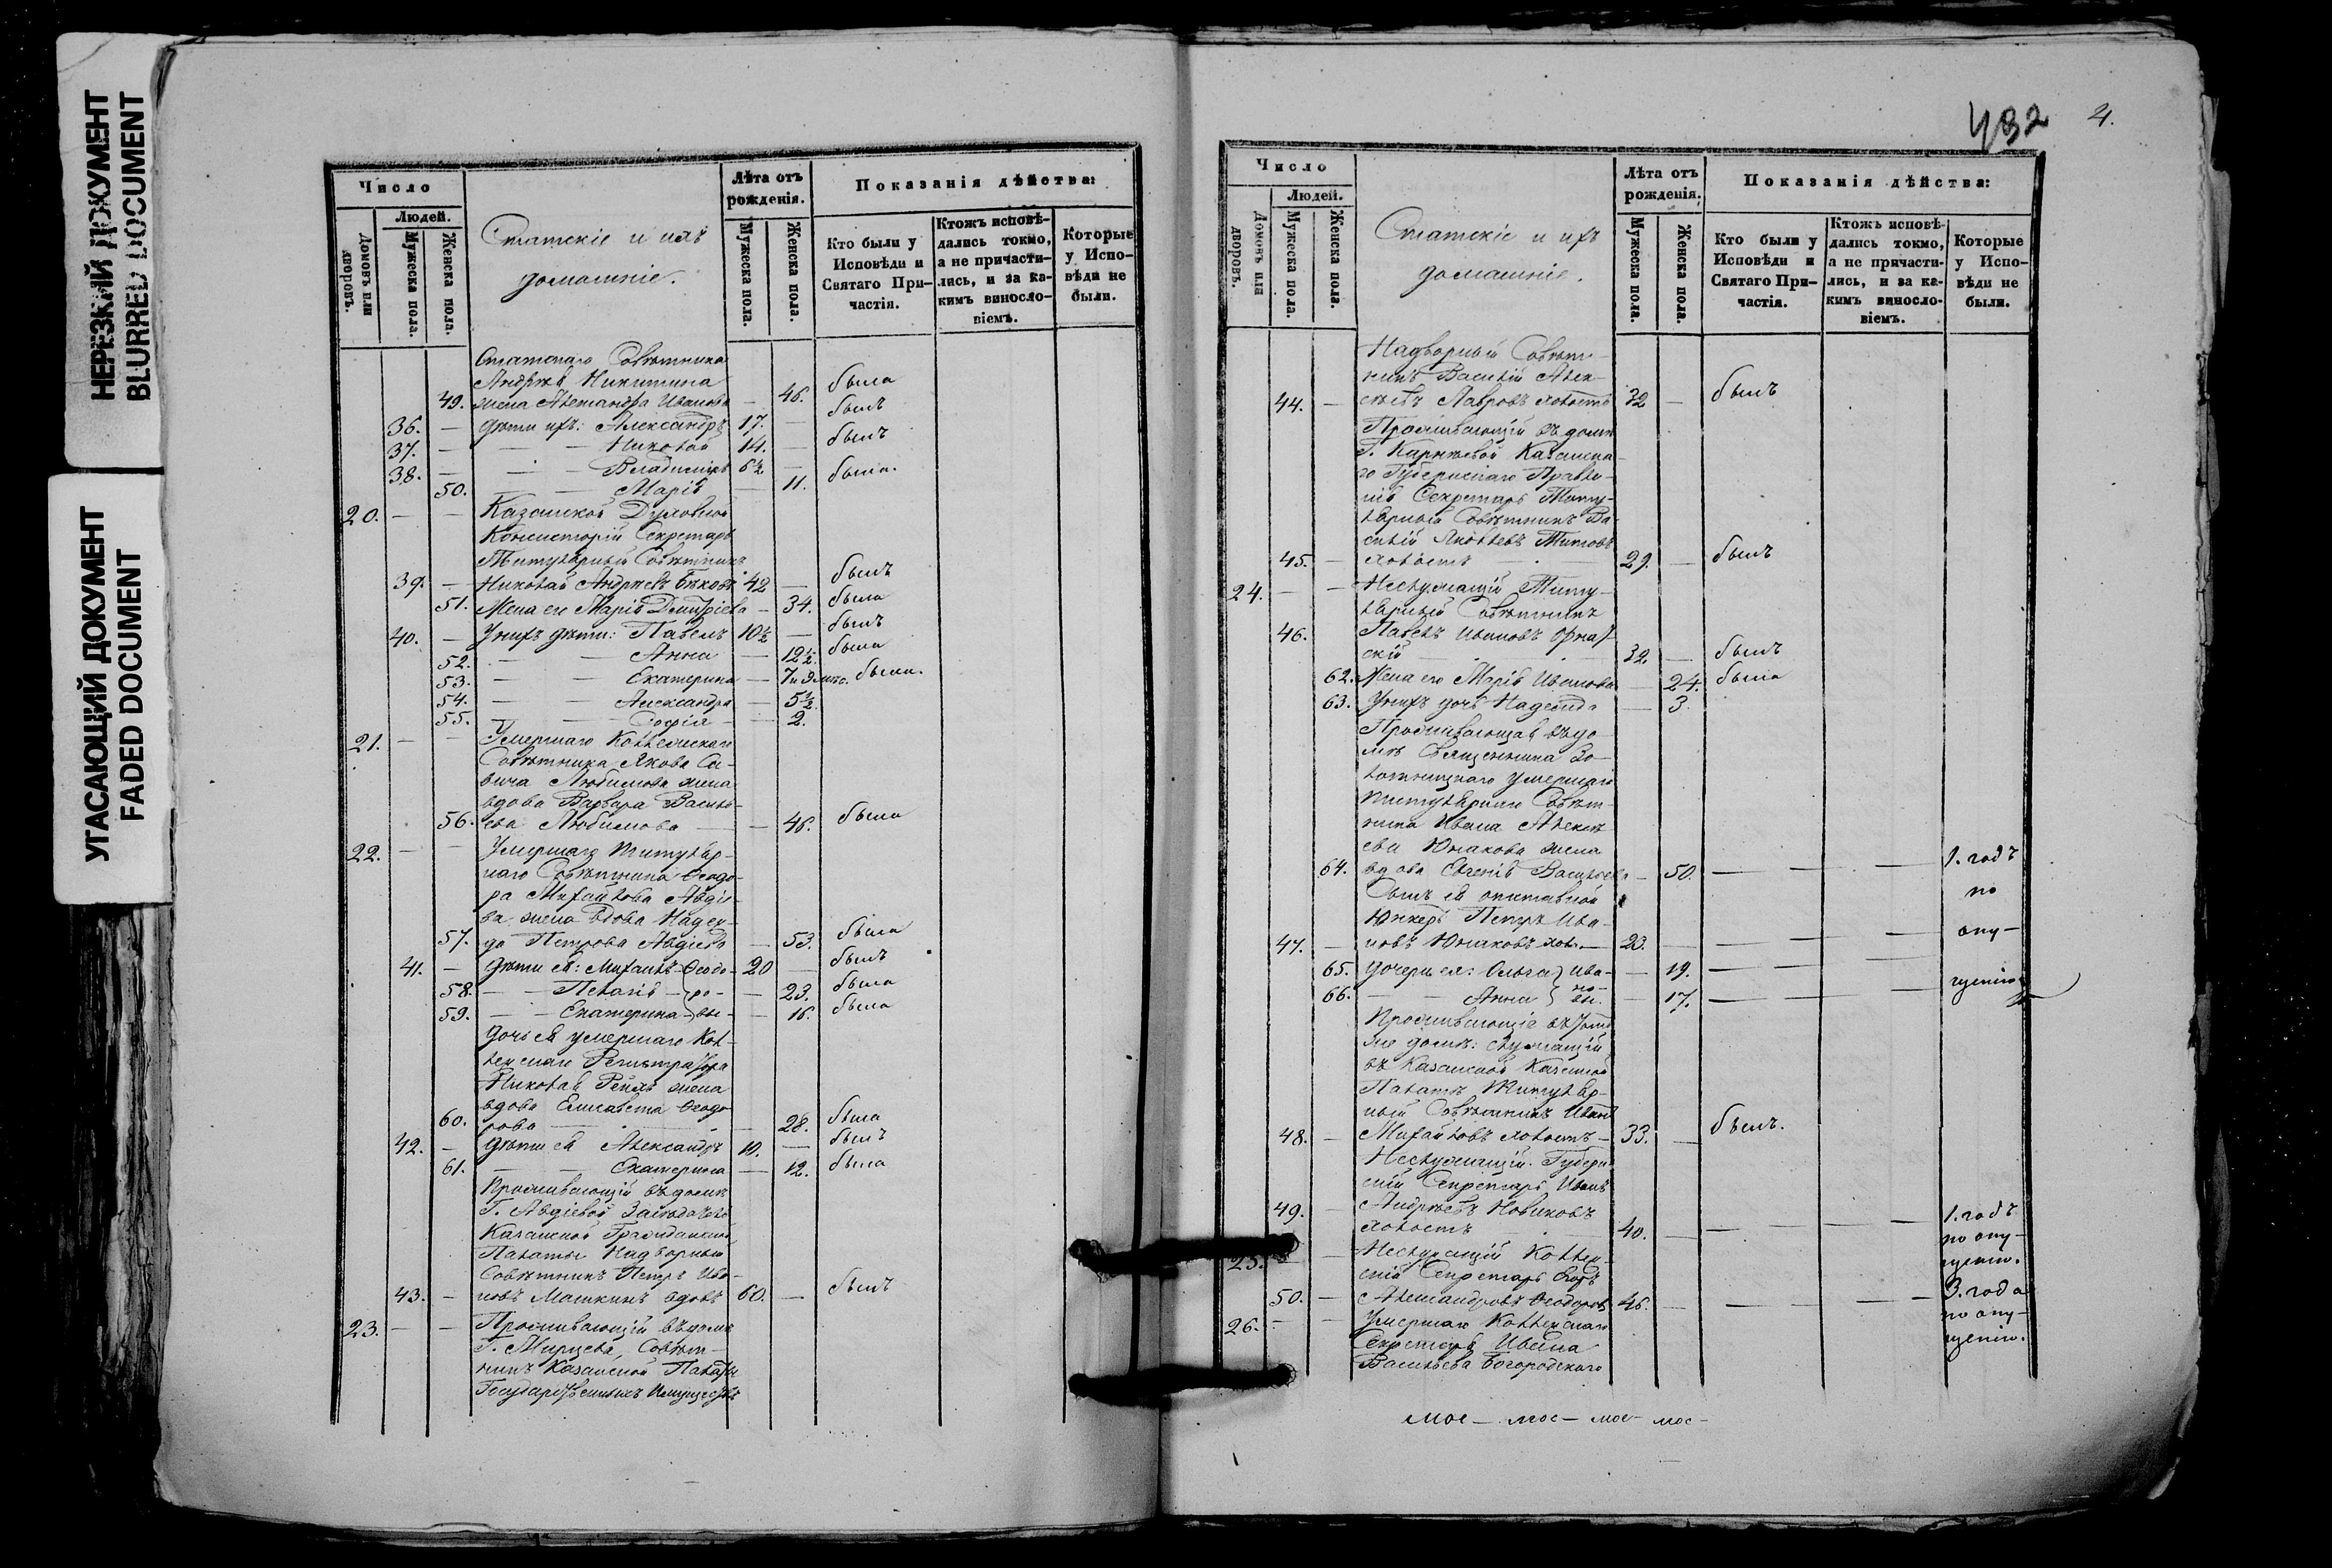 НЕРЕЗКИЙ ДОКУМЕНТ
BLURRED DOCUMENT
УГАСАЮЩИЙ ДОКУМЕНТ
FADED DOCUMENT
Число
Людей.
Домовъ или дворовъ.
Мужеска пола.
Женска пола.
Статскіе и ихъ
домашніе.
Лѣта отъ
рожденія.
Мужеска пола.
Женска пола.
Показанія дѣйства:
Кто были у
Исповѣди и
Святаго При-
частія.
Ктожъ исповѣ-
дались токмо,
а не причасти-
лись, и за ка-
кимъ виносло-
віемъ.
Которые
у Испо-
вѣди не
были.
Статскаго Совѣтника
Андрея Никитина
49. жена Александра Иванова — 46. была
36. — дѣти ихъ: Александръ 17. — былъ
37. — — — Николай 14. — былъ
38. — — — Владиміръ 6½ —
50. — — Марія — 11. была.
20. — — Казанской Духовной
Консисторіи Секретарь
Титулярный Совѣтникъ
39. — Николай Андреевъ 42 — былъ
51. Жена его Марія Дмитріева — 34. была
40. — У нихъ дѣти: Павелъ 10½ — былъ
52. — — Анна — 12½. была
53. — — Екатерина — 7 и 9 мѣс. была.
54. — — Александра — 5½
55. — — Софія — 2.
21. — — Умершаго Коллежскаго
Совѣтника Якова Са-
вича Любимова жена
вдова Варвара Василь-
56. ева Любимова — — 46. была
22. — — Умершаго Титуляр-
наго Совѣтника Ѳеодо-
ра Михайлова Авдіе-
ва жена вдова Надеж-
57. да Петрова Авдіева — 53. была
41. — дѣти ея: Михаилъ Ѳеодо- 20 — былъ
58. — — Пелагія — ро- — 23. была
59. — — Екатерина — вы — 16. была
дочь ея умершаго Кол-
лежскаго Регистратора
Николая жена
вдова Елисавета Ѳеодо
60. рова — — 28. была
42. — дѣти ея Александръ 10. — былъ
61. — — Екатерина — 12. была
Проживающій въ домѣ
Г. Авдіевой Засѣдатель
Казанской Гражданской
Палаты Надворный
Совѣтникъ Петръ Ива-
43. — новъ Машкинъ вдовъ 60. — былъ
23. — — Проживающій въ домѣ
Г. Совѣт-
никъ Казанской Палаты
Государственныхъ Имуществъ
432 4.
Число
Людей.
Домовъ или дворовъ.
Мужеска пола.
Женска пола.
Статскіе и ихъ
домашніе.
Лѣта отъ
рожденія.
Мужеска пола.
Женска пола.
Показанія дѣйства:
Кто были у
Исповѣди и
Святаго При-
частія.
Ктожъ исповѣ-
дались токмо,
а не причасти-
лись, и за ка-
кимъ виносло-
віемъ.
Которые
у Испо-
вѣди не
были.
Надворный Совѣт-
никъ Василій Алек-
44. — сѣевъ Лавровъ холостъ 32 — былъ
Проживающій въ домѣ
Г. Казанска-
го Губернскаго Правле-
нія Секретарь Титу-
лярный Совѣтникъ Ва-
силій Яковлевъ Титовъ
45. — холостъ — 29. — былъ
24. — — Неслужащій Титу-
лярный Совѣтникъ
46. Павелъ Ивановъ
скій 32. — былъ
62. Жена его Марія Иванова — 24. была
63. У нихъ дочь Надежда — 3.
Проживающая въ до-
мѣ Священника Зо-
лотницкаго умершаго
Титулярнаго Совѣт-
ника Ивана Алексѣ-
ева Юнакова жена
64. вдова Евгенія Васильева — 50. — — 1. годъ
по
опу-
щенію
Сынъ ея отставной
Юнкеръ Петръ Ива-
47. — новъ Юнаковъ хол. — 23. — — —
65. дочери ея: Ольга Ива- — 19. — —
66. — — Анна но- вы. — 17. — —
Проживающіе въ томъ
же домѣ: служащій
въ Казанской Казенной
Палатѣ Титуляр-
ный Совѣтникъ Иванъ
48. — Михайловъ холостъ — 33. — былъ.
Неслужащій Губерн-
скій Секретарь Иванъ
49. — Андреевъ Новиковъ
холостъ 40. — — — 1. годъ
по опу-
щенію.
25. — — Неслужащій Коллеж-
скій Секретарь Егоръ
50. — Александровъ Ѳеодоровъ 46. — — — 3. года
по опу-
щенію.
26. — — Умершаго Коллежскаго
Секретаря Ивана
Васильева Богородскаго
мос — мос — мос — мос —